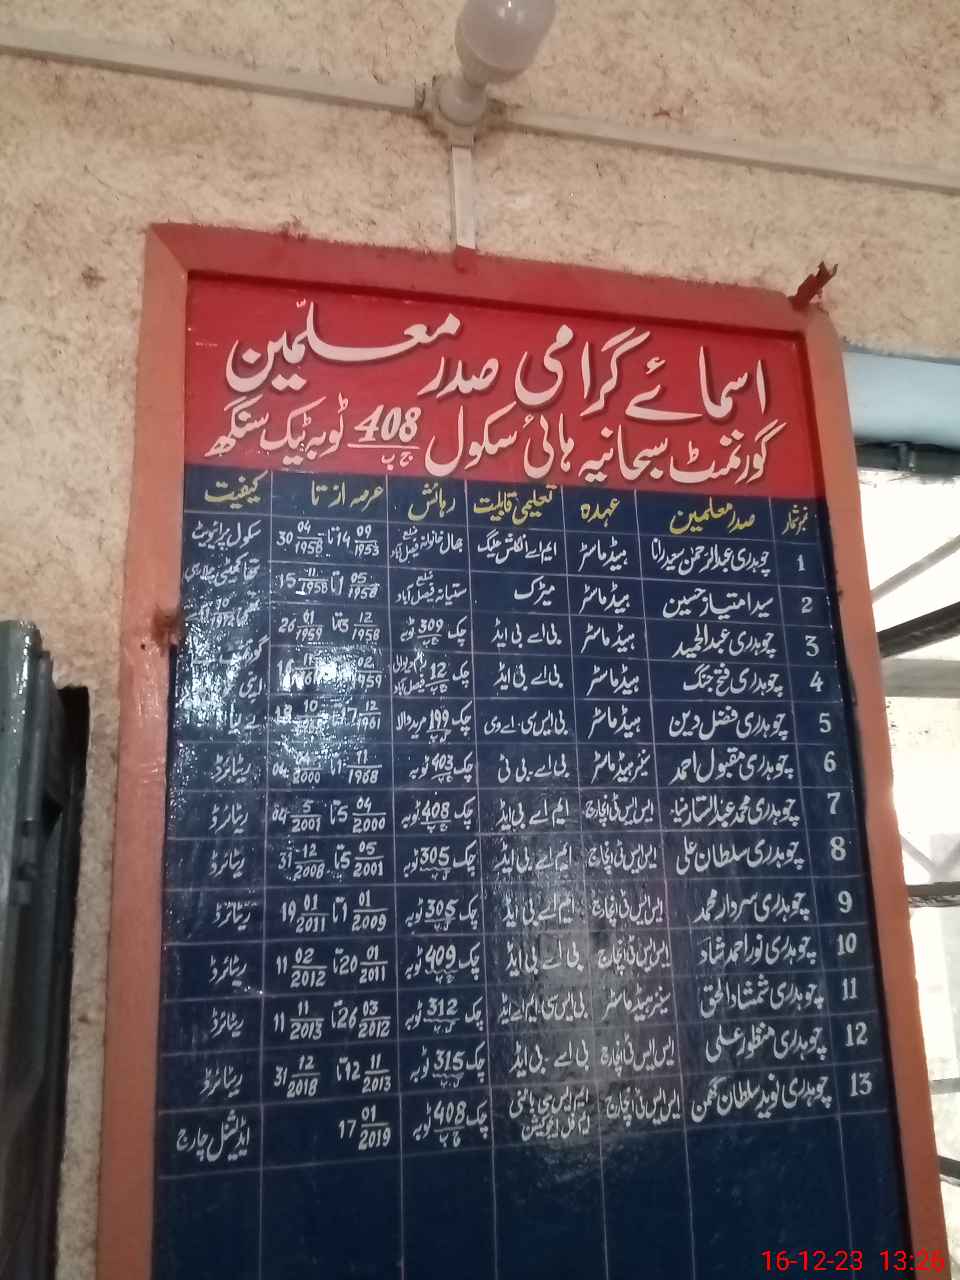 اسمائے گرامی صدر معلمین
گورنمنٹ سبحانیہ ہائی سکول 408 ج ب ٹوبہ ٹیک سنگھ
نمبر شمار صدر معلمین عہدہ تعلیمی قابلیت رہائش عرصہ از تا کیفیت
1 چوہدری عبدالرحمن سعید رانا ہیڈ ماسٹر ایم اے انگلش فیصل آباد 14 09/1953 تا 30 04/1958 سکول پرائیویٹ
2 سید امتیاز حسین ہیڈ ماسٹر میٹرک ستیانہ ضلع فیصل آباد 1 05/1958 تا 15 11/1958
3 چوہدری عبدالحمید ہیڈ ماسٹر بی اے بی ایڈ چک 309 ٹوبہ 12/1958 تا 26 01/1959
4 چوہدری فتح جنگ ہیڈ ماسٹر بی اے بی ایڈ چک 12 فیصل آباد گورنمنٹ
5 چوہدری فضل دین ہیڈ ماسٹر بی ایس سی۔اے وی چک 199 12/1961
6 چوہدری مقبول احمد سینئر ہیڈ ماسٹر بی اے۔بی ٹی چک 403 ٹوبہ 1 11/1968 تا 04/2000 ریٹائرڈ
7 چوہدری محمد عبدالستار ضیاء ایس ایس ٹی انچارج ایم اے بی ایڈ چک 408 ج ب ٹوبہ 5 04/2000 تا 04 5/2001 ریٹائرڈ
8 چوہدری سلطان علی ایس ایس ٹی انچارج ایم اے بی ایڈ چک 305 ٹوبہ 5 05/2001 تا 31 12/2008 ریٹائرڈ
9 چوہدری سردار محمد ایس ایس ٹی انچارج ایم اے بی ایڈ چک 305 ٹوبہ 1 01/2009 تا 19 01/2011 ریٹائرڈ
10 چوہدری نور احمد شاد ایس ایس ٹی انچارج بی اے بی ایڈ چک 409 ٹوبہ 20 01/2011 تا 11 02/2012 ریٹائرڈ
11 چوہدری شمشاد الحق سینئر ہیڈ ماسٹر بی ایس سی۔ایم اے ایڈ چک 312 ٹوبہ 26 03/2012 تا 11 11/2013 ریٹائرڈ
12 چوہدری منظور علی ایس ایس ٹی انچارج بی اے۔بی ایڈ چک 315 ٹوبہ 12 11/2013 تا 31 12/2018 ریٹائرڈ
13 چوہدری نوید سلطان گھمن ایس ایس ٹی انچارج ایم ایس سی باٹنی ایم فل ایجوکیشن چک 408 ج ب ٹوبہ 17 01/2019 ایڈیشنل چارج
16-12-23 13:26